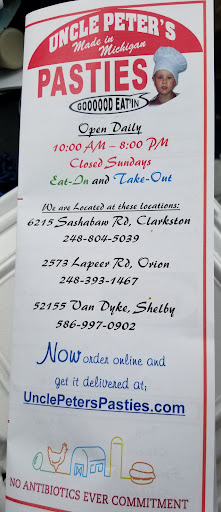 UNCLE PETER'S
Made in
Michigan
PASTIES
GOOOOOD EAT'IN
Open Daily
10:00 AM – 8:00 PM
Closed Sundays
Eat-In and Take-Out
We are Located at these locations:
6215 Sashabaw Rd, Clarkston
248-804-5039
2573 Lapeer Rd, Orion
248-393-1467
52155 Van Dyke, Shelby
586-997-0902
Now order online and
get it delivered at;
UnclePetersPasties.com
NO ANTIBIOTICS EVER COMMITMENT